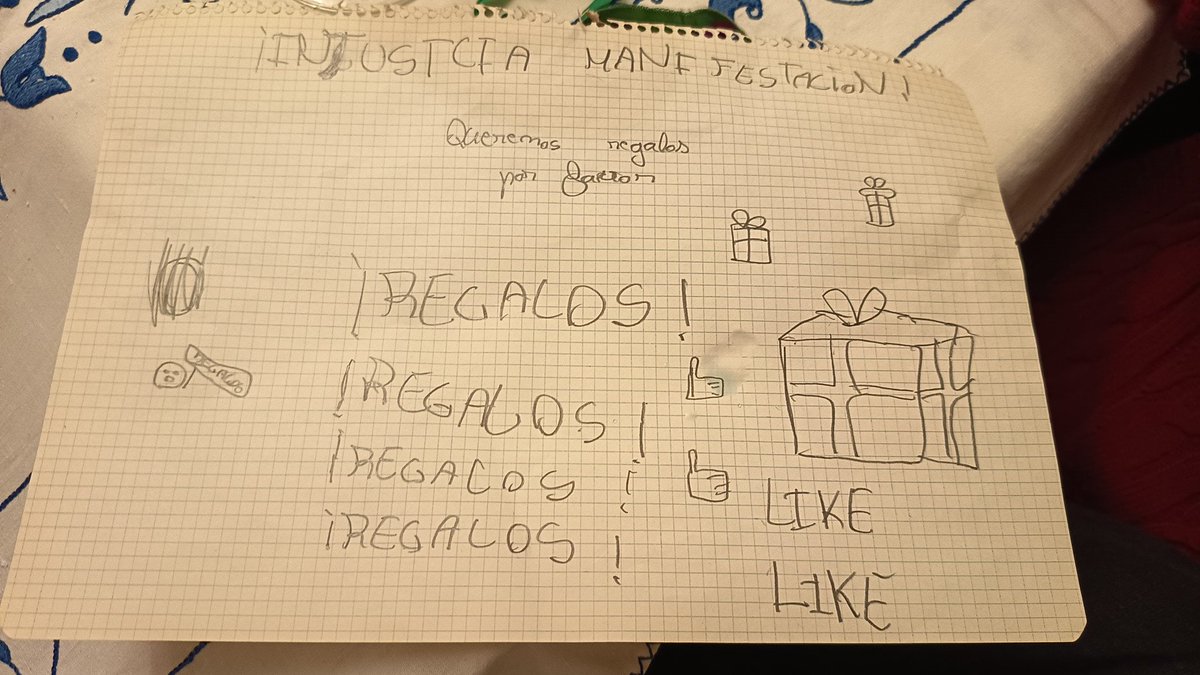 ¡INJUSTCIA MANIFESTACION!
Queremos regalos
por favor
¡REGALOS!
¡REGALOS!
¡REGALOS!
¡REGALOS!
REGALOS
LIKE
LIKE